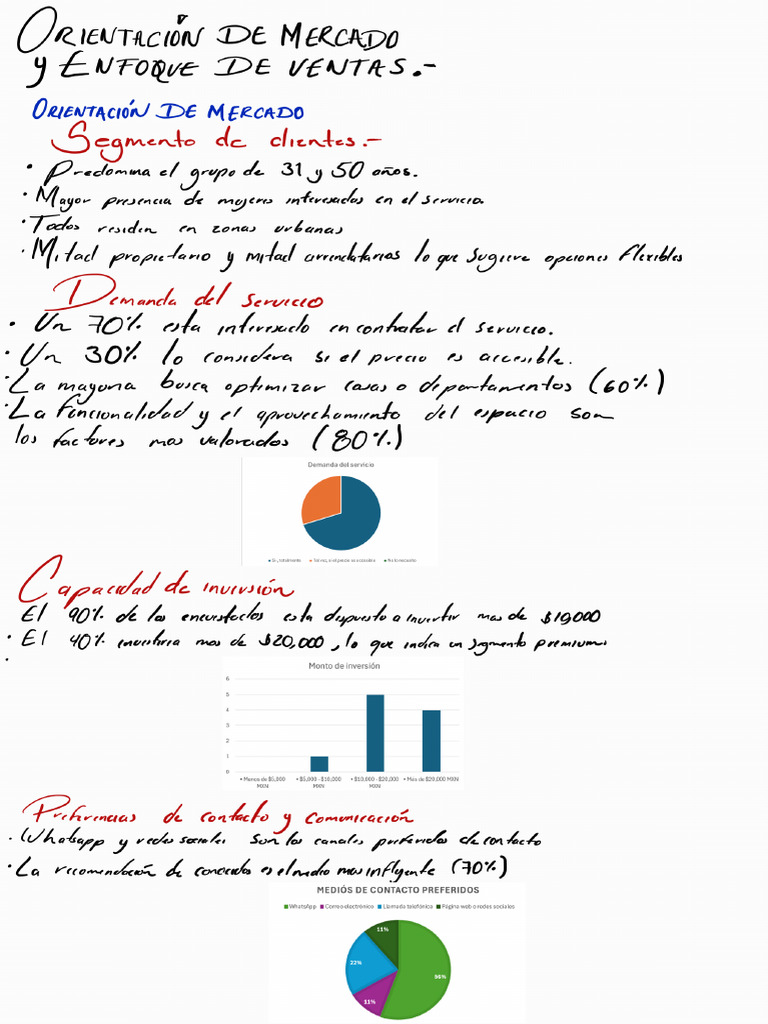 ORIENTACIÓN DE MERCADO
y ENFOQUE DE VENTAS.-
ORIENTACIÓN DE MERCADO
Segmento de clientes.-
• Predomina el grupo de 31 y 50 años.
• Mayor presencia de mujeres interesadas en el servicio.
• Todos residen en zonas urbanas
• Mitad propietario y mitad arrendatarios lo que sugiere opciones flexibles
Demanda del servicio
• Un 70% esta interesado en contratar el servicio.
• Un 30% lo considera si el precio es accesible.
• La mayoria busca optimizar casas o departamentos (60%)
• La funcionalidad y el aprovechamiento del espacio son
los factores mas valorados (80%)
Demanda del servicio
• Si, totalmente • Tal vez, si el precio es accesible • No lo necesito
Capacidad de inversión
El 90% de los encuestados esta dispuesto a invertir mas de $10,000
• El 40% invertiria mas de $20,000, lo que indica un segmento premium
•
Monto de inversión
6
5
4
3
2
1
0
• Menos de $5,000 MXN • $5,000 - $10,000 MXN • $10,000 - $20,000 MXN • Más de $20,000 MXN
Preferencias de contacto y comunicación
• Whatsapp y redes sociales son los canales preferidos de contacto
• La recomendación de conocidos es el medio mas influyente (70%)
MEDIOS DE CONTACTO PREFERIDOS
WhatsApp Correo electrónico Llamada telefónica Página web o redes sociales
11%
22%
56%
11%